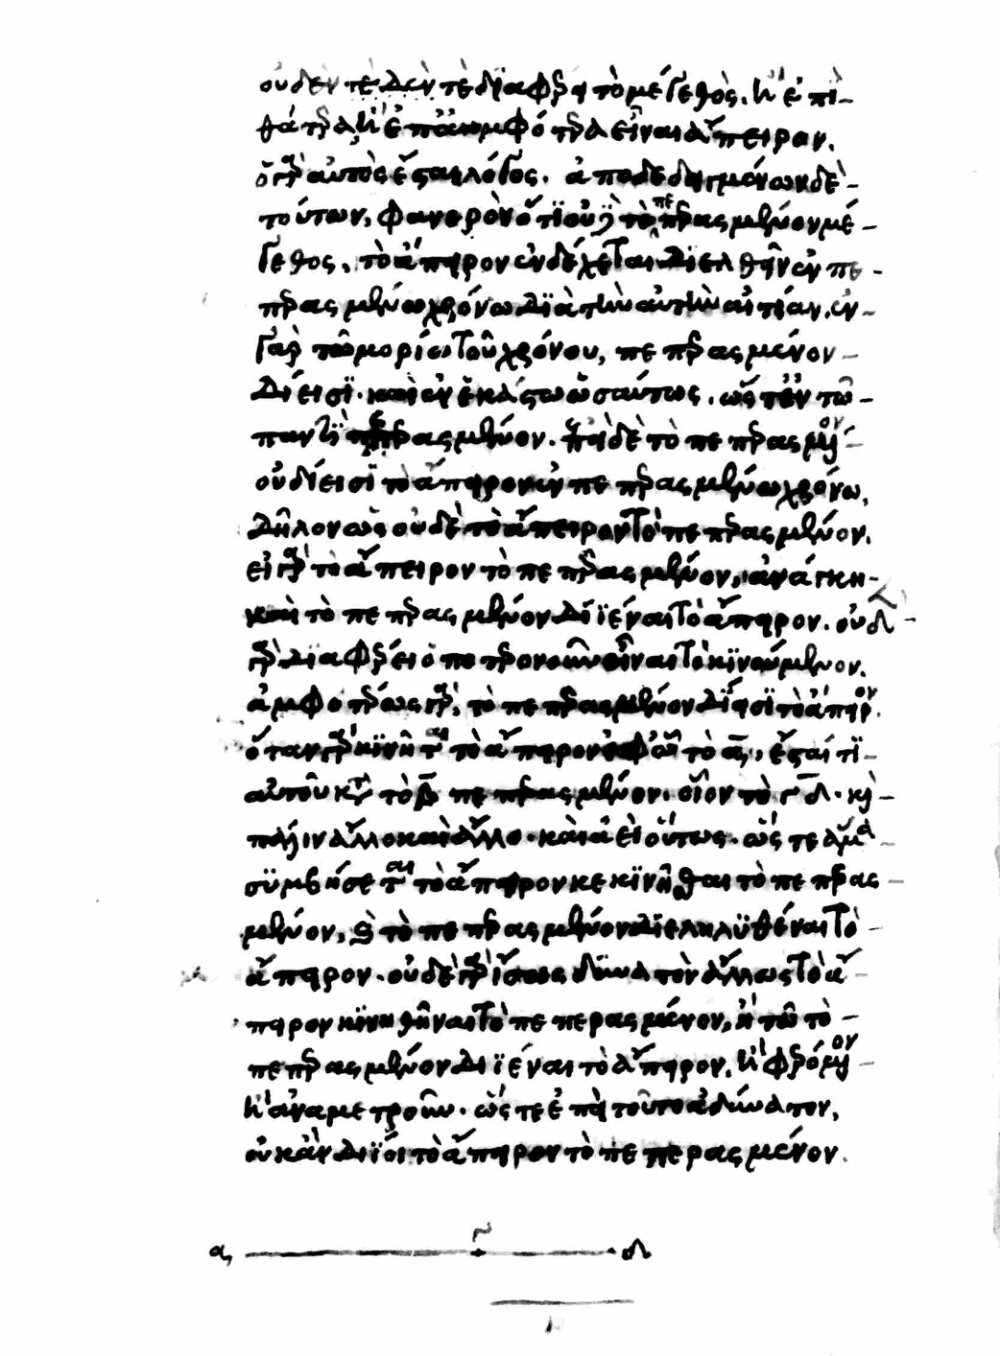 οὐδὲν τὲ δεν τὲ διαφέρει τὸ μέγεθος. ἢ ἐπὶ
θάτερα ἢ ἐπ' ἄμφότερα εἶναι ἄπειρον.
ὁ γὰρ αὐτὸς ἔσται λόγος. ἀποδεδειγμένων δὲ
τούτων, φανερὸν ὅτι οὐδὲ τὸ πεπερασμένον μέ
γεθος, τὸ ἄπειρον ἐνδέχεται διελθεῖν ἐν πε
περασμένω χρόνω διὰ τὴν αὐτὴν αἰτίαν. ἐν
γὰρ τῶ μορίω τοῦ χρόνου, πεπερασμένον
δίεισι. καὶ ἐν ἑκάστω ὡσαύτως. ὥστ' ἐν τῶ
παντὶ πεπερασμένον. ἐπεὶ δὲ τὸ πεπερασμένον
οὐ δίεισι τὸ ἄπειρον ἐν πεπερασμένω χρόνω,
δῆλον ὡς οὐδὲ τὸ ἄπειρον τὸ πεπερασμένον.
εἰ γὰρ τὸ ἄπειρον τὸ πεπερασμένον, ἀνάγκη
καὶ τὸ πεπερασμένον διϊέναι τὸ ἄπειρον. οὐδὲν
γὰρ διαφέρει ὁποτερονοῦν εἶναι τὸ κινούμενον.
ἀμφοτέρως γὰρ, τὸ πεπερασμένον δίεισι τὸ ἄπειρον.
ὅταν γὰρ κινῆται τὸ ἄπειρον ἐφ' ὧ τὸ α, ἔσται τι
αὐτοῦ κατὰ τὸ β πεπερασμένον. οἷον τὸ γδ. καὶ
πάλιν ἄλλο καὶ ἄλλο. καὶ ἀεὶ οὕτως. ὥστε ἅμα
συμβήσεται τὸ ἄπειρον κεκινῆσθαι τὸ πεπερας
μένον, καὶ τὸ πεπερασμένον διεληλυθέναι τὸ
ἄπειρον. οὐδὲ γὰρ ἴσως δυνατὸν ἄλλως τὸ ἄ
πειρον κινηθῆναι τὸ πεπερασμένον, ἢ τῶ τὸ
πεπερασμένον διϊέναι τὸ ἄπειρον. ἢ φερόμενον
ἢ ἀναμετροῦν. ὥστε ἐπεὶ τοῦτο ἀδύνατον,
οὐκ ἂν διΐοι τὸ ἄπειρον τὸ πεπερασμένον.
α γ δ